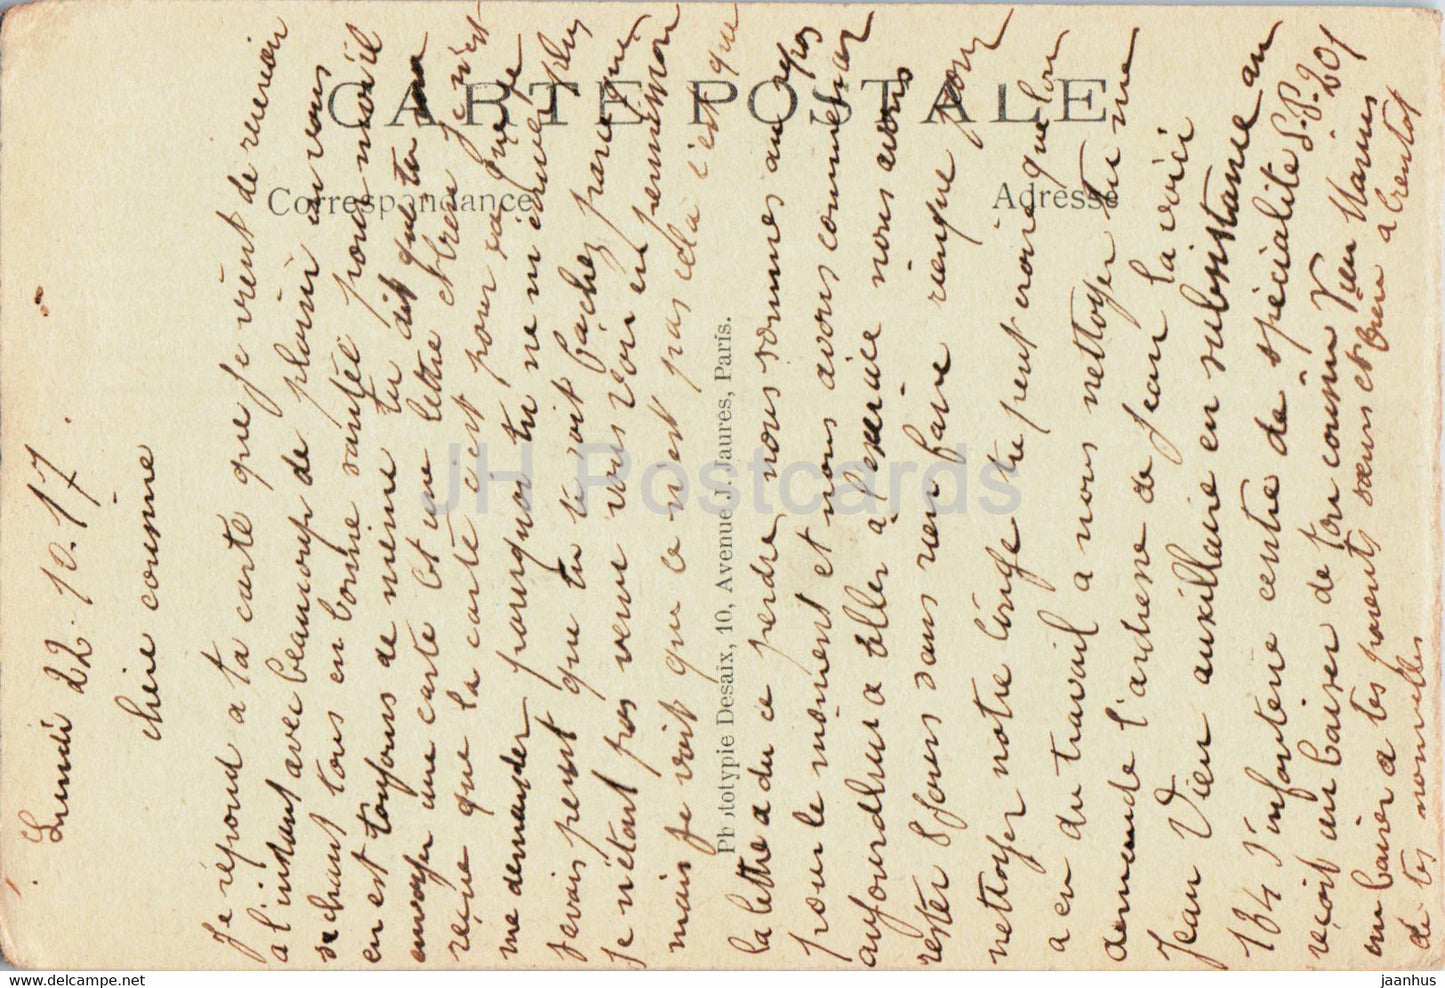 CARTE POSTALE
Correspondance
Adresse
Phototypie Desaix, 10, Avenue J. Jaures, Paris.
JH Postcards
Lundi 22.10.17.
chere cousine
Je répond a ta carte que je vient de recevoir
a l'instant avec beaucoup de plaisir en vous
sachant tous en bonne santée pour moi il
en est toujours de meme tu dit que tu ma
envoyer une carte et une lettre et bien je n'est
reçue que la carte c'est pour sa que je
me demander pourquoi tu ne m'écrivé plus
javais peur que tu te soit fachez parce que
je n'étant pas venue vous voir en permission
mais je voit que ce n'est pas cela c'est que
la lettre a du ce perdre nous sommes au repos
pour le moment et nous avons commencer
aujourdhui a aller à l'exercice nous avons
rester 8 jours sans rien faire rienque pour
nettoyer notre linge tu peut croire que lon
a eu du travail a nous nettoyer tu me
demende l'adresse de Jean la voici
Jean Vieu auxillaire en subsistance au
134 d'infanterie centre de spécialité S.P. 201
reçoit un baiser de ton cousin Vieu Marius
un baiser a tes parents sœurs et frère a bientot
de tes nouvelles
jaanhus
www.delcampe.net